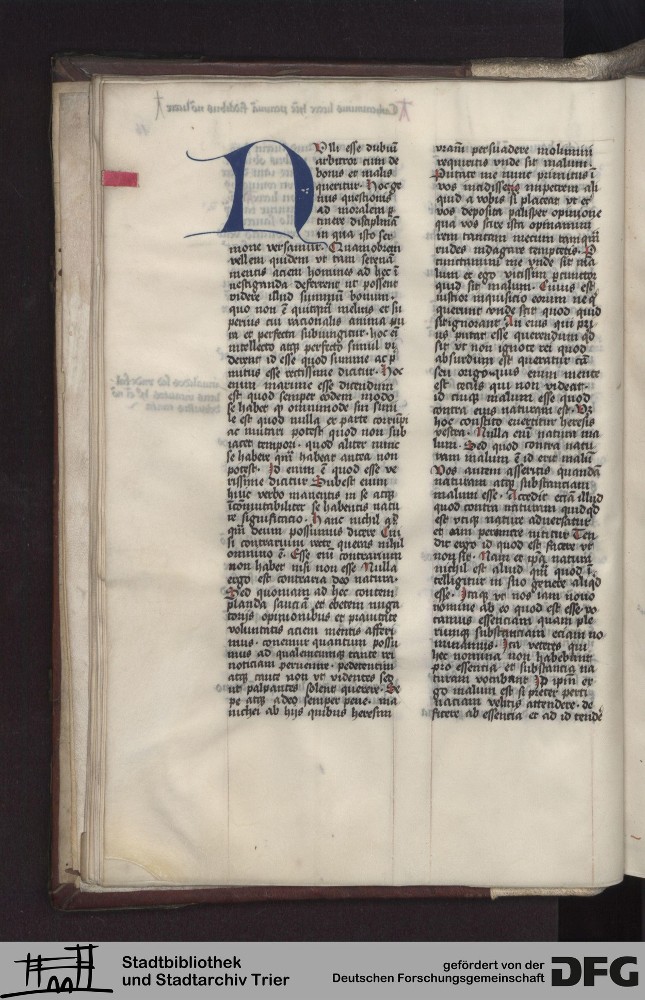 Nulli esse dubiū
arbitror cum de
bonis et malis
queritur. hoc ge
nus questionis
ad moralem p
tinere disciplinā
in qua isto ser
mone versamur. Quamobrem
vellem quidem ut tam serenā
mentis aciem homines ad hec ī
vestiganda deferrent ut possent
videre illud summū bonum.
quo non ē quicqm̄ melius et su
perius cui racionalis anima pu
ra et perfecta subiungitur. hoc eī
intellecto atqꝫ perfecto simul vi
derent id esse quod summe ac p
mitus esse rectissime dicatur. Hoc
enim maxime esse dicendum
est quod semper eodem modo
se habet qꝫ omnimode sui simi
le est quod nulla ex parte corrūpi
ac mutari potest quod non sub
iacet tempori. quod aliter nunc
se habere qm̄ habeat antea non
potest. Id enim ē quod esse ve
rissime dicitur Subest enim
huic verbo manentis in se atqꝫ
īcōmutabiliter se habentis natu
re significacio. Hanc nichil aliud
qm̄ deum possumus dicere Cui
si contrarium recte queras nihil
omnino ē. Esse eni contrarium
non habet nisi non esse Nulla
ergo est contraria deo natura.
Sed quoniam ad hec contem
planda sauciā et ebetem nuga
torijs opinionibus et prauitate
voluntatis aciem mentis afferi
mus. conemur quantum possu
mus ad qualemcumqꝫ tante rei
noticiam peruenire. pedetentim
atqꝫ caute non vt videntes sed
ut palpantes solent querere. Se
pe atqꝫ adeo semper pene. ma
nichei ab hijs quibus heresim
vram̄ persuadere molimini
requiritis vnde sit malum.
Putate me nunc primitus ī
vos incidisse impetrem ali
quid a vobis si placeat vt et
vos deposita palisper opinione
qua vos scire ista opinamini
rem tantam mecum tamqm̄
rudes indagare temptetis. P
cunctamini me vnde sit ma
lum et ego vicissim pcunctor
quid sit malum. Cuius est
iustior inquisicio eorum ne qͥ
querunt vnde sit quod quid
sit ignorant An eius qui pri
us putat esse querendum qd
sit vt non ignote rei quod
absurdum est queratur cā
seu origo. quis enim mente
est cecus qui non videat.
id cuiqꝫ malum esse quod
contra eius naturam est. Vꝝ
hoc constito euertitur heresis
vestra. Nulla eni natura ma
lum. Sed quod contra natu
ram malum ē id erit malū
Vos autem asseritis quandā
naturam atqꝫ substantiam
malum esse. Accedit etiā illud
quod contra naturam quidqd
est vtiqꝫ nature aduersatur
et eam perimere nititur Ten
dit ergo id quod est facere vt
non sit. Nam et ipā natura
nichil est aliud qm̄ quod ī
telligitur in suo genere aliqd
esse. Itaqꝫ vt nos iam nouo
nomine ab eo quod est esse vo
camus essenciam quam ple
rumqꝫ substanciam eciam no
minamus. Ita veteres qui
hec nomina non habebant
pro essencia et substancia na
turam vocabant Id ipm̄ er
go malum est si preter perti
naciam velitis attendere. de
ficere ab essencia et ad id tende
Stadtbibliothek
und Stadtarchiv Trier
gefördert von der
Deutschen Forschungsgemeinschaft
DFG